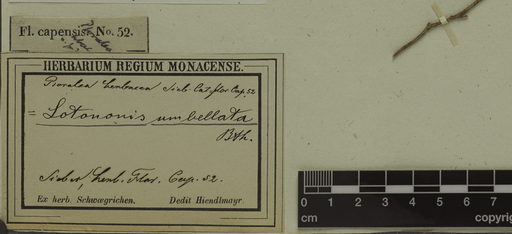 Fl. capensis. No. 52.
HERBARIUM REGIUM MONACENSE.
Psoralea Sieb. Cat. flor. Cap. 52
= Lotononis umbellata
Bth.
Sieber, herb. Flor. Cap. 52.
Ex herb. Schwægrichen. Dedit Hiendlmayr.
0 1 2 3 4 5 6 7
cm copyrig